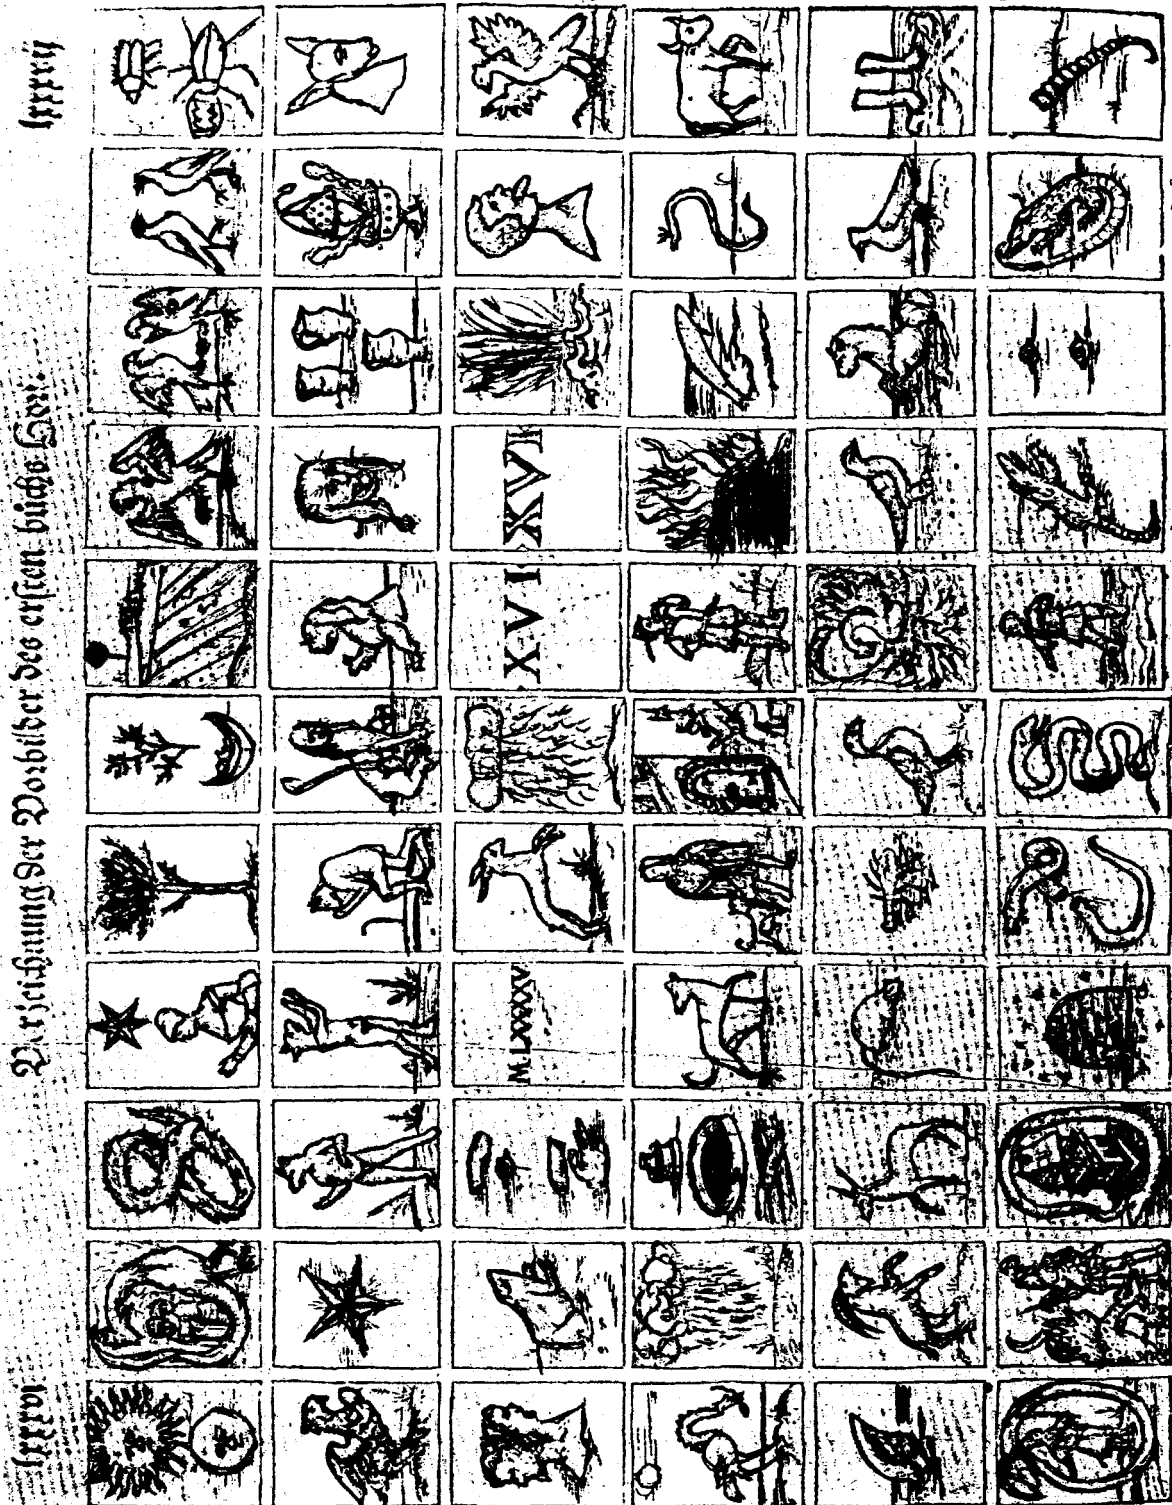 lxxxvi Verzeichnung der Vorbilder des ersten büchs Hori. lxxxvij
M.LXXXXV
XVI